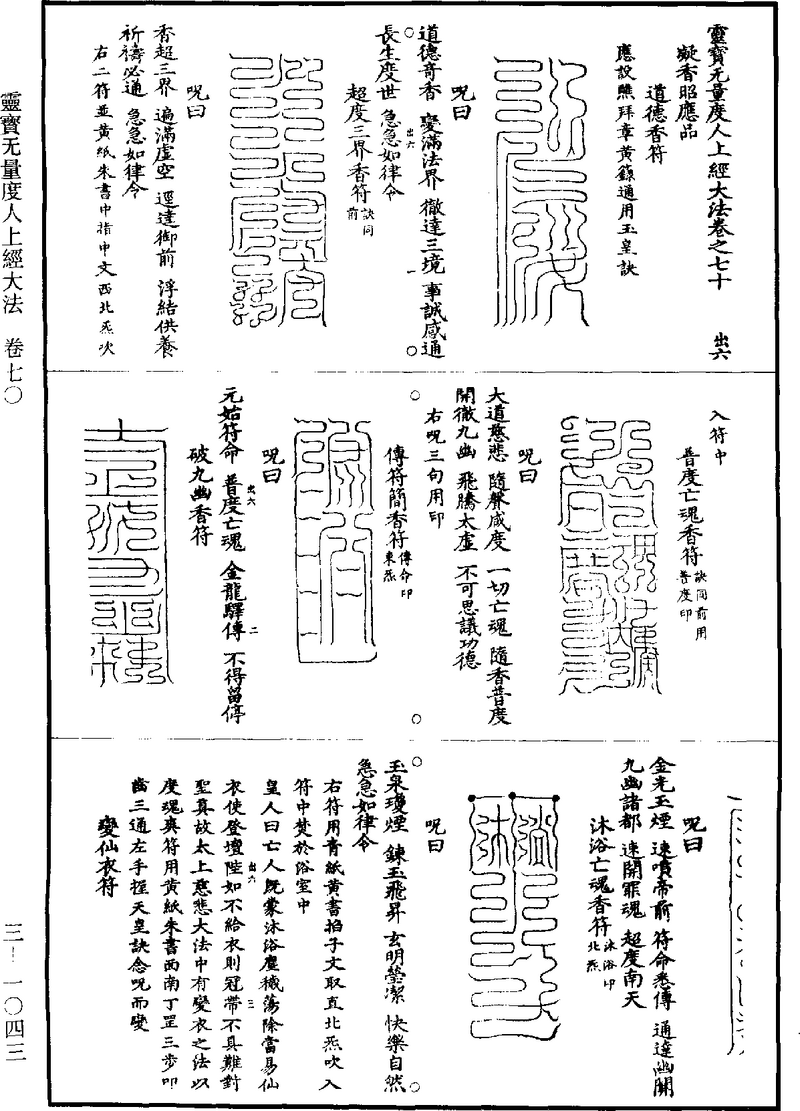 靈寶无量度人上經大法卷之七十　出六
凝香昭應品
道德香符
應設醮拜章黃籙通用玉皇訣
呪曰
道德奇香　變滿法界　徹達三境　事誠感通
長生度世　急急如律令
出六
一
超度三界香符訣同前
呪曰
香超三界　遍滿虛空　逕達御前　浮結供養
祈禱必通　急急如律令
右二符並黃紙朱書中指中文西北炁吹
入符中
普度亡魂香符訣同前用普度印
呪曰
大道慈悲　隨聲咸度　一切亡魂　隨香普度
開徹九幽　飛騰太虛　不可思議功德
右呪三句用印
傳符簡香符傳命印東炁
呪曰
元始符命　普度亡魂　金龍驛傳　不得留停
出六
二
破九幽香符
呪曰
金光玉煙　速噴帝前　符命悉傳　通達幽關
九幽諸都　速開罪魂　超度南天
沐浴亡魂香符沐浴印北炁
呪曰
玉泉瓊煙　鍊玉飛昇　玄明瑩潔　快樂自然
急急如律令
右符用青紙黃書掐子文取直北炁吹入
符中焚於浴室中
皇人曰亡人既蒙沐浴塵穢蕩除當易仙
衣使登壇陛如不給衣則冠帶不具難對
出六
三
聖真故太上慈悲大法中有變衣之法以
度魂爽符用黃紙朱書西南丁罡三步叩
齒三通左手握天皇訣念呪而變
變仙衣符
靈寶无量度人上經大法　卷七〇
三—一〇四三